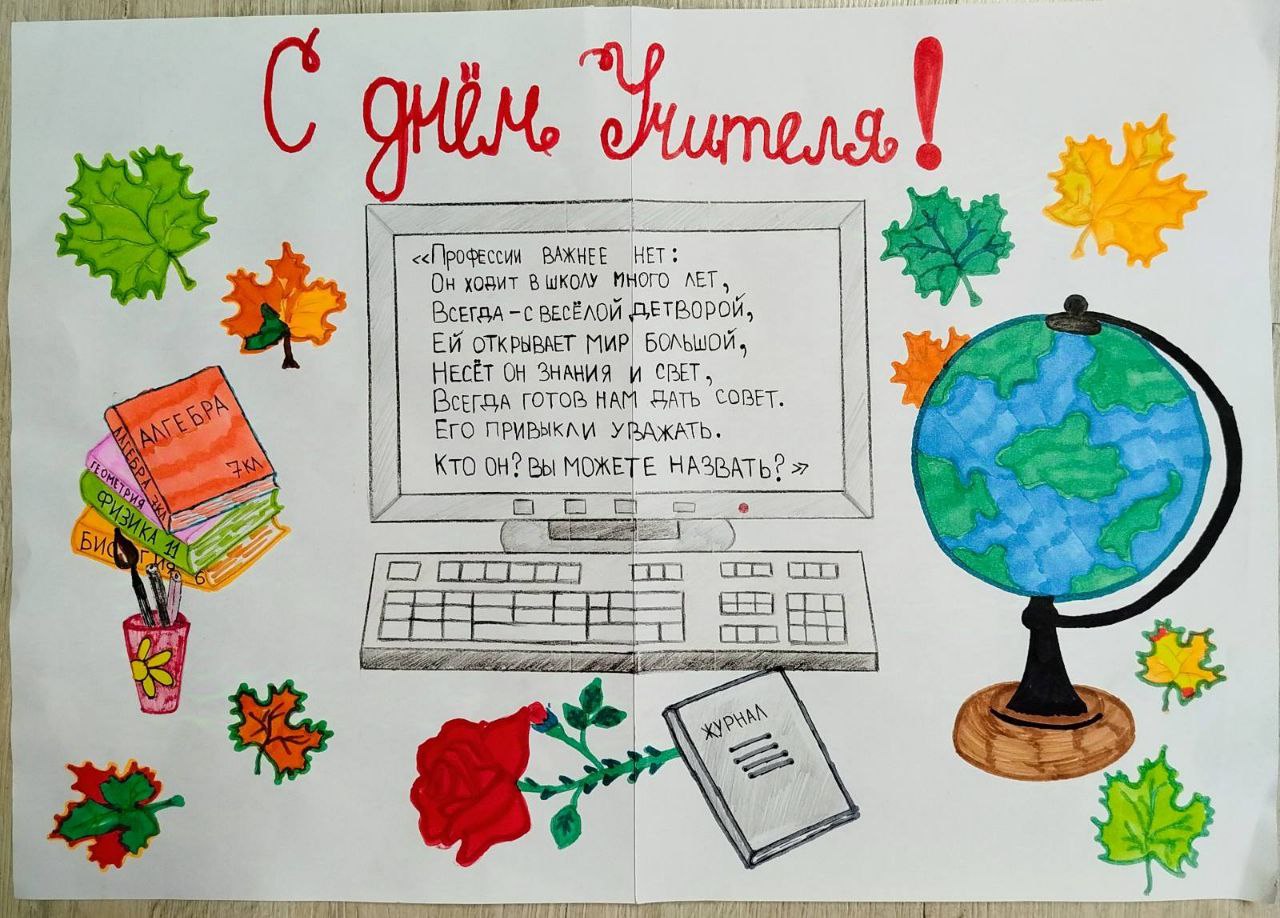 С днём Учителя!
«Профессии важнее нет:
Он ходит в школу много лет,
Всегда – с весёлой детворой,
Ей открывает мир большой,
Несёт он знания и свет,
Всегда готов нам дать совет.
Его привыкли уважать.
Кто он? Вы можете назвать?»
АЛГЕБРА
7 КЛ
АЛГЕБРА 7КЛ
ГЕОМЕТРИЯ
ФИЗИКА 11
БИОЛОГИЯ 6
ЖУРНАЛ